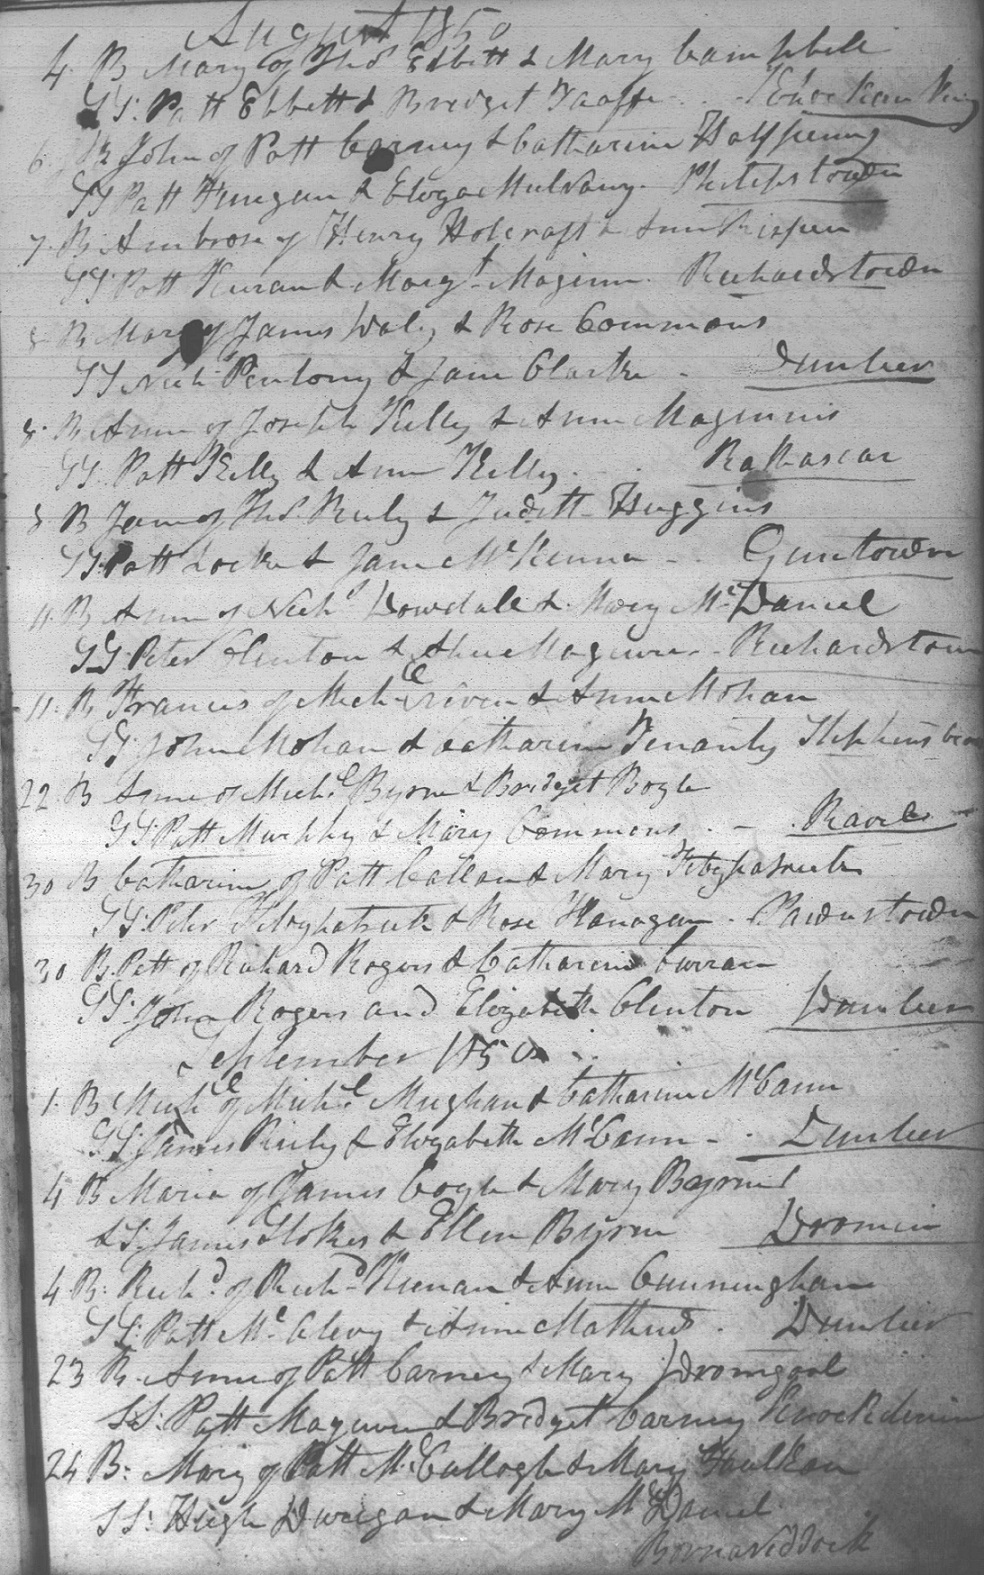 August 1850
4. B Mary of Thos Ebbitt & Mary Campbell
SS: Patt Ebbett & Bridget Taaffe
6. B John of Patt Carney & Catharine Halfpenny
SS Patt Finegan & Eliza Mulvany. Philipstown
7. B. Ambrose of Henry Holcraft & Ann
SS: Patt & Margt Maginn. Richardstown
8. B Mary of James Daly & Rose Commons
SS Nich Pentony & Jane Clarke - Dunleer
8. B Anne of Joseph Kelly & Anne Maginnis
SS. Patt Kelly & Ann Kelly. Rathascar
8 B Jane of Thos. Riely & Judith Huggins
SS: Patt Locke & Jane McKenna - Guntown
11. B Anne of Nichs Dowdall & Mary McDaniel
SS: Peter Clinton & Anne Maguire - Richardstown
11. B Francis of Michl Niven & Anne Mohan
SS: John Mohan & Catharine Tenanty
22. B Anne of Michl Byrne & Bridget Boyle
SS: Patt Murphy & Mary Commons. -
30 B Catharine of Patt Callan & Mary Fitzpatrick
SS: Peter Fitzpatrick & Rose Flanagan.
30 B. Patt of Richard Rogers & Catharine Curran
SS: John Rogers and Elizabeth Clinton Dunleer
September 1850
1. B Michl of Michl Meghan & Catharine McCann
SS James Riely & Elizabeth McCann - Dunleer
4 B Maria of James Coyle & Mary Byrne
SS. James Stokes & Ellen Byrne Dromin
4 B: Richd. of Richd Kienan & Anne Cunningham
SS: Patt McAlevy & Anne Mathews. Dunleer
23 B. Anne of Patt Carney & Mary Dromgool
SS: Patt Maguire & Bridget Carney
24 B: Mary of Patt McCullogh & Mary Faulkan
SS: Hugh Durigan & Mary McDaniel